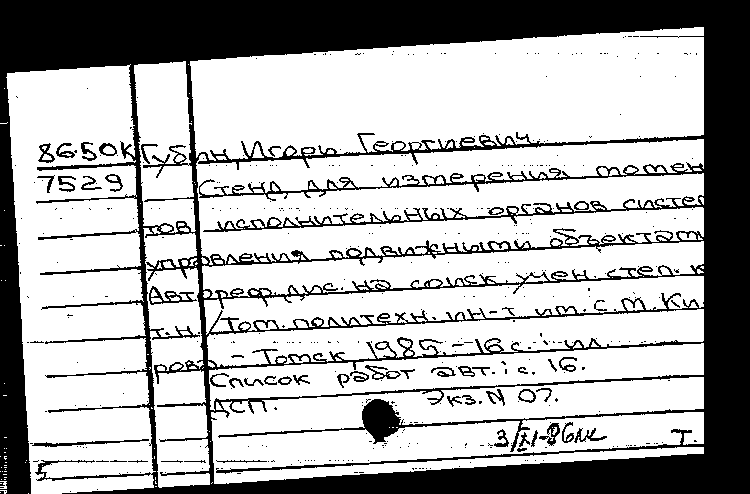 86-50К Губин, Игорь Георгиевич.
7529 Стенд для измерения момен
тов исполнительных органов систем
управления подвижными объектами
Автореф. дис. на соиск. учен. степ. к
т.н. / Том. политехн. ин-т им. С.М. Ки
рова. - Томск, 1985. - 16 с.: ил.
Список работ авт.: с. 16.
ДСП. Экз. N 07.
Т.
5